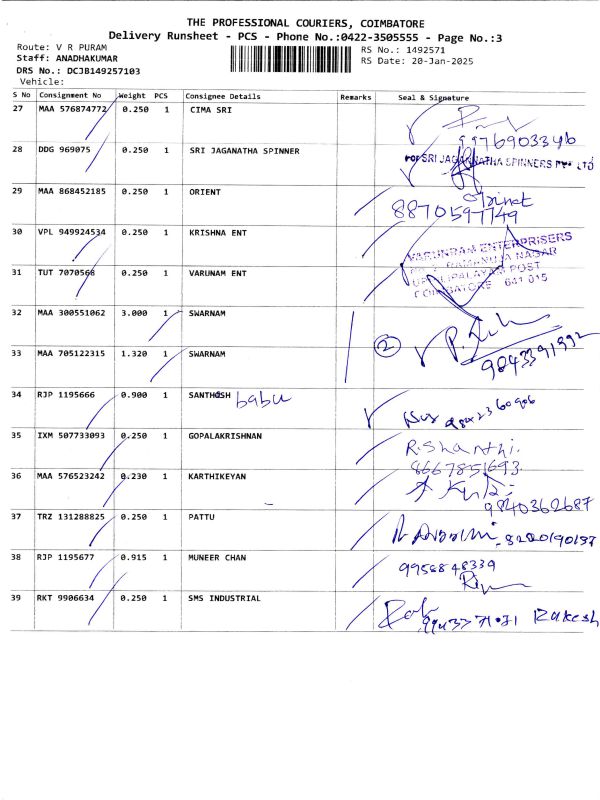 THE PROFESSIONAL COURIERS, COIMBATORE
Delivery Runsheet - PCS - Phone No.:0422-3505555 - Page No.:3
Route: V R PURAM
RS No.: 1492571
Staff: ANADHAKUMAR
RS Date: 20-Jan-2025
DRS No.: DCJB149257103
Vehicle:
S No Consignment No Weight PCS Consignee Details Remarks Seal & Signature
27 MAA 576874772 0.250 1 CIMA SRI
9976903346
28 DDG 969075 0.250 1 SRI JAGANATHA SPINNER
For SRI JAGANNATHA SPINNERS PVT LTD
29 MAA 868452185 0.250 1 ORIENT
8870597749
30 VPL 949924534 0.250 1 KRISHNA ENT
VARUNRAM ENTERPRISERS
RAMANUJA NAGAR
UPPILIPALAYAM POST
COIMBATORE 641 015
31 TUT 7070568 0.250 1 VARUNAM ENT
32 MAA 300551062 3.000 1 SWARNAM
2
9843391992
33 MAA 705122315 1.320 1 SWARNAM
34 RJP 1195666 0.900 1 SANTHOSH babu
35 IXM 507733093 0.250 1 GOPALAKRISHNAN
R. Shanthi.
8667851693
36 MAA 576523242 0.230 1 KARTHIKEYAN
9840362687
37 TRZ 131288825 0.250 1 PATTU
38 RJP 1195677 0.915 1 MUNEER CHAN
9958848339
39 RKT 9906634 0.250 1 SMS INDUSTRIAL
Rakesh